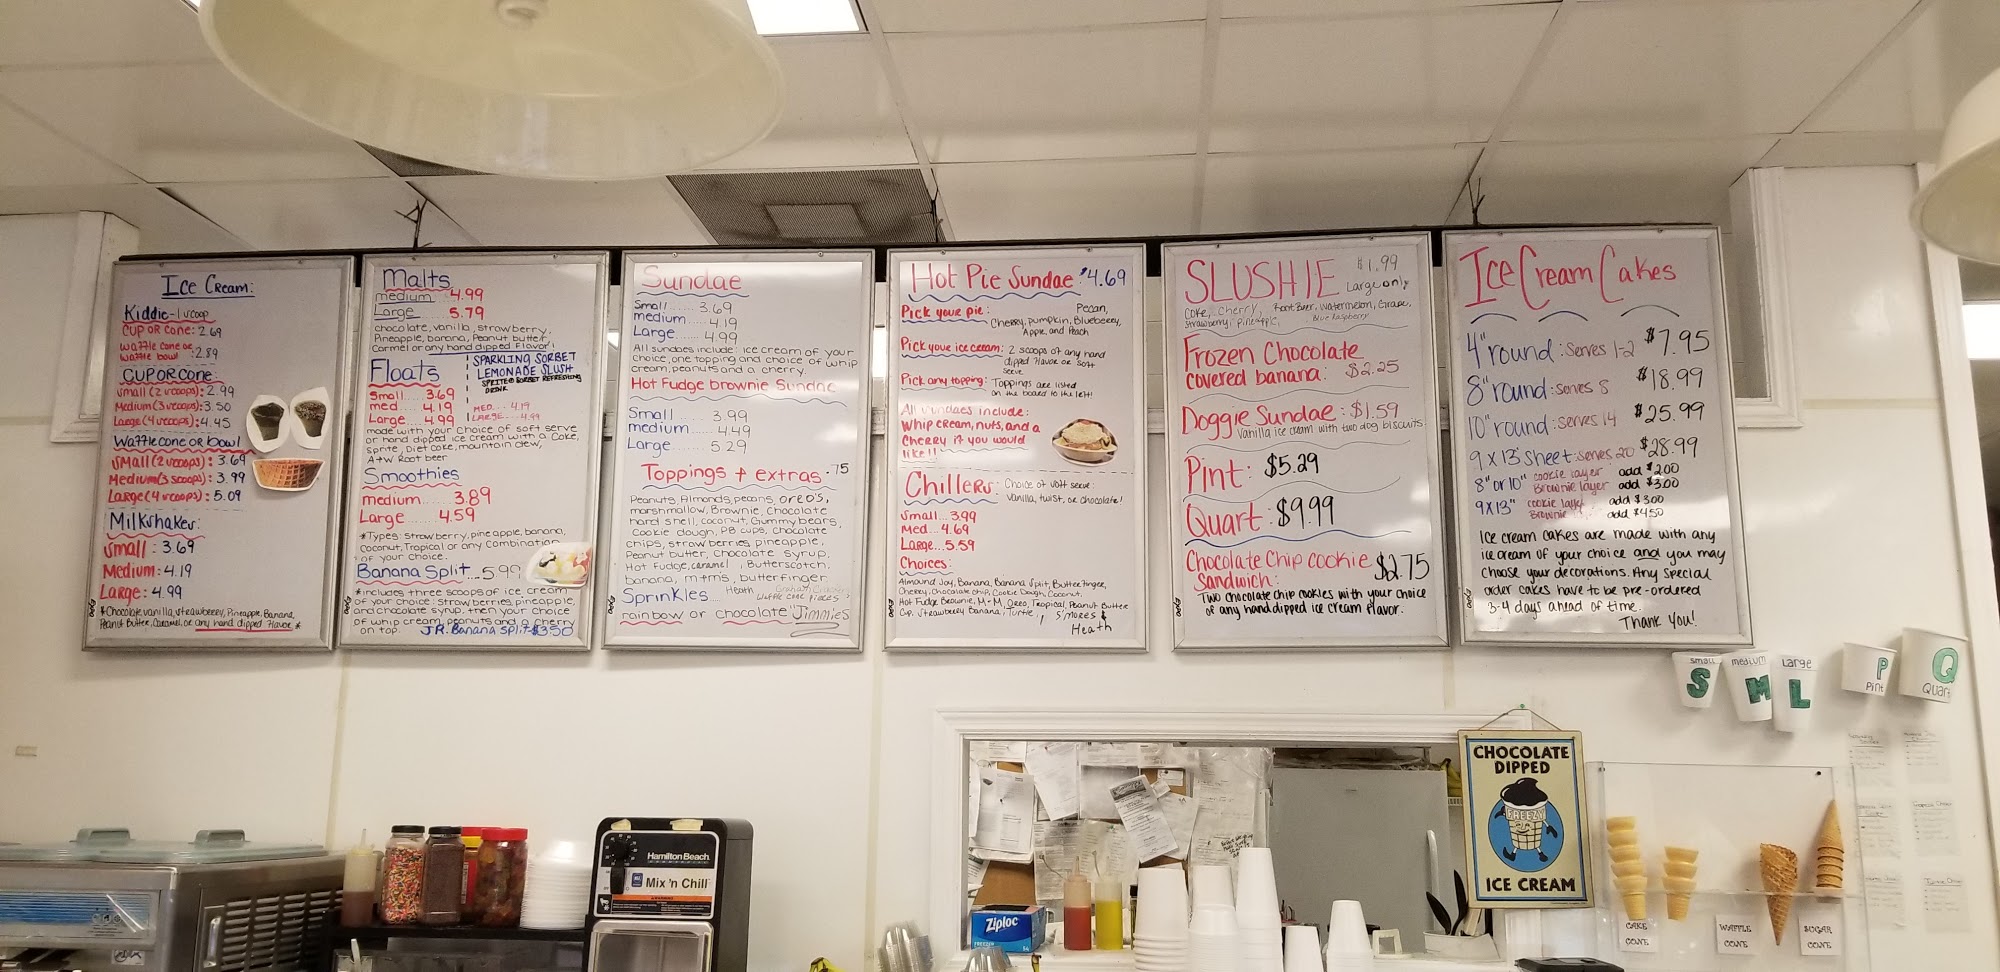 Ice Cream:
Kiddie-1 scoop
Cup or Cone: 2.69
Waffle cone or
waffle bowl: 2.89
Cup or Cone:
Small (2 scoops): 2.99
Medium (3 scoops): 3.50
Large (4 scoops): 4.45
Waffle cone or bowl
Small (2 scoops): 3.69
Medium (3 scoops): 3.99
Large (4 scoops): 5.09
Milkshakes:
Small: 3.69
Medium: 4.19
Large: 4.99
*Chocolate, vanilla, strawberry, Pineapple, Banana,
Peanut Butter, Caramel, or any hand dipped flavor *
Malts
medium 4.99
Large 5.79
chocolate, vanilla, strawberry,
Pineapple, banana, Peanut butter
Carmel or any hand dipped flavor!
Floats
Small... 3.69
med.... 4.19
Large... 4.99
SPARKLING SORBET
LEMONADE SLUSH
SPRITE & SORBET REFRESHING
DRINK
MED... 4.19
LARGE... 4.99
made with your choice of soft serve
or hand dipped ice cream with a Coke,
sprite, Diet coke, mountain dew,
A+W Root beer
Smoothies
medium..... 3.89
Large....... 4.59
*Types: strawberry, pineapple, banana,
Coconut, Tropical or any Combination
of your choice.
Banana Split... 5.99
*includes three scoops of ice cream
of your choice: strawberries, pineapple,
and chocolate syrup. then your choice
of whip cream, peanuts and a cherry
on top. J.R. Banana Split-$3.50
Sundae
Small..... 3.69
medium..... 4.19
Large..... 4.99
All sundaes include: ice cream of your
choice, one topping and choice of whip
cream, peanuts and a cherry.
Hot Fudge brownie Sundae
Small...... 3.99
medium..... 4.49
Large...... 5.29
Toppings + extras .75
Peanuts, Almonds, pecans, oreo's,
marshmallow, Brownie, Chocolate
hard shell, coconut, Gummy bears,
Cookie dough, PB cups, chocolate
chips, strawberries, pineapple,
Peanut butter, chocolate syrup,
Hot Fudge, caramel, Butterscotch,
banana, m+ms, butterfinger
Heath
Sprinkles
rainbow or chocolate "Jimmies"
Hot Pie Sundae: $4.69
Pick your pie: Pecan,
Cherry, pumpkin, Blueberry,
Apple, and Peach
Pick your ice cream: 2 scoops of any hand
dipped flavor or soft
serve
Pick any topping: Toppings are listed
on the board to the left!
All sundaes include:
Whip cream, nuts, and a
Cherry if you would
like!!
Chillers: Choice of soft serve:
vanilla, twist, or chocolate!
Small... 3.99
Med... 4.69
Large... 5.59
Choices:
Almound Joy, Banana, Banana Split, Butterfinger,
Cherry, Chocolate chip, Cookie Dough, Coconut,
Hot Fudge Brownie, M+M, Oreo, Tropical, Peanut Butter
Cup, Strawberry Banana, Turtle, S'mores &
Heath
SLUSHIE $1.99
Large only
Coke, Cherry, Root Beer, Watermelon, Grape,
Strawberry, Pineapple, Blue Raspberry
Frozen Chocolate
covered banana: $2.25
Doggie Sundae: $1.59
Vanilla ice cream with two dog biscuits
Pint: $5.29
Quart: $9.99
Chocolate Chip cookie $2.75
Sandwich:
Two chocolate chip cookies with your choice
of any hand dipped ice cream flavor.
Ice Cream Cakes
4" round: Serves 1-2 $7.95
8" round: Serves 8 $18.99
10" round: serves 14 $25.99
9x13" sheet: serves 20 $28.99
8" or 10" cookie layer add $2.00
Brownie layer add $3.00
9x13" cookie layer add $3.00
Brownie add $4.50
Ice cream cakes are made with any
ice cream of your choice and you may
choose your decorations. Any special
order cakes have to be pre-ordered
3-4 days ahead of time.
Thank you!
small
S
medium
M
Large
L
P
Pint
Q
Quart
Hamilton Beach
Mix 'n Chill
Ziploc
FREEZER
CHOCOLATE
DIPPED
FREEZY
ICE CREAM
CAKE
CONE
WAFFLE
CONE
SUGAR
CONE